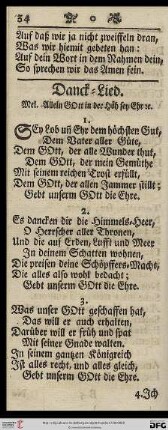 54
Auf daß wir ja nicht zweiffeln dran,
Was wir hiemit gebeten han:
Auf dein Wort in dem Nahmen dein,
So sprechen wir das Amen fein.
Danck-Lied.
Mel. Allein GOtt in der Höh sey Ehr ꝛc.
1.
SEy Lob uñ Ehr dem höchsten Gut,
Dem Vater aller Güte,
Dem GOtt, der alle Wunder thut,
Dem GOtt, der mein Gemüthe
Mit seinem reichen Trost erfüllt,
Dem GOtt, der allen Jammer stillt;
Gebt unserm GOtt die Ehre.
2.
Es dancken dir die Himmels-Heer,
O Herrscher aller Thronen,
Und die auf Erden, Lufft und Meer
In deinem Schatten wohnen,
Die preisen deine Schöpffers-Macht,
Die alles also wohl bedacht;
Gebt unserm GOtt die Ehre.
3.
Was unser GOtt geschaffen hat,
Das will er auch erhalten,
Darüber will er früh und spat
Mit seiner Gnade walten.
In seinem gantzen Königreich
Ist alles recht, und alles gleich,
Gebt unserm GOtt die Ehre.
4. Ich